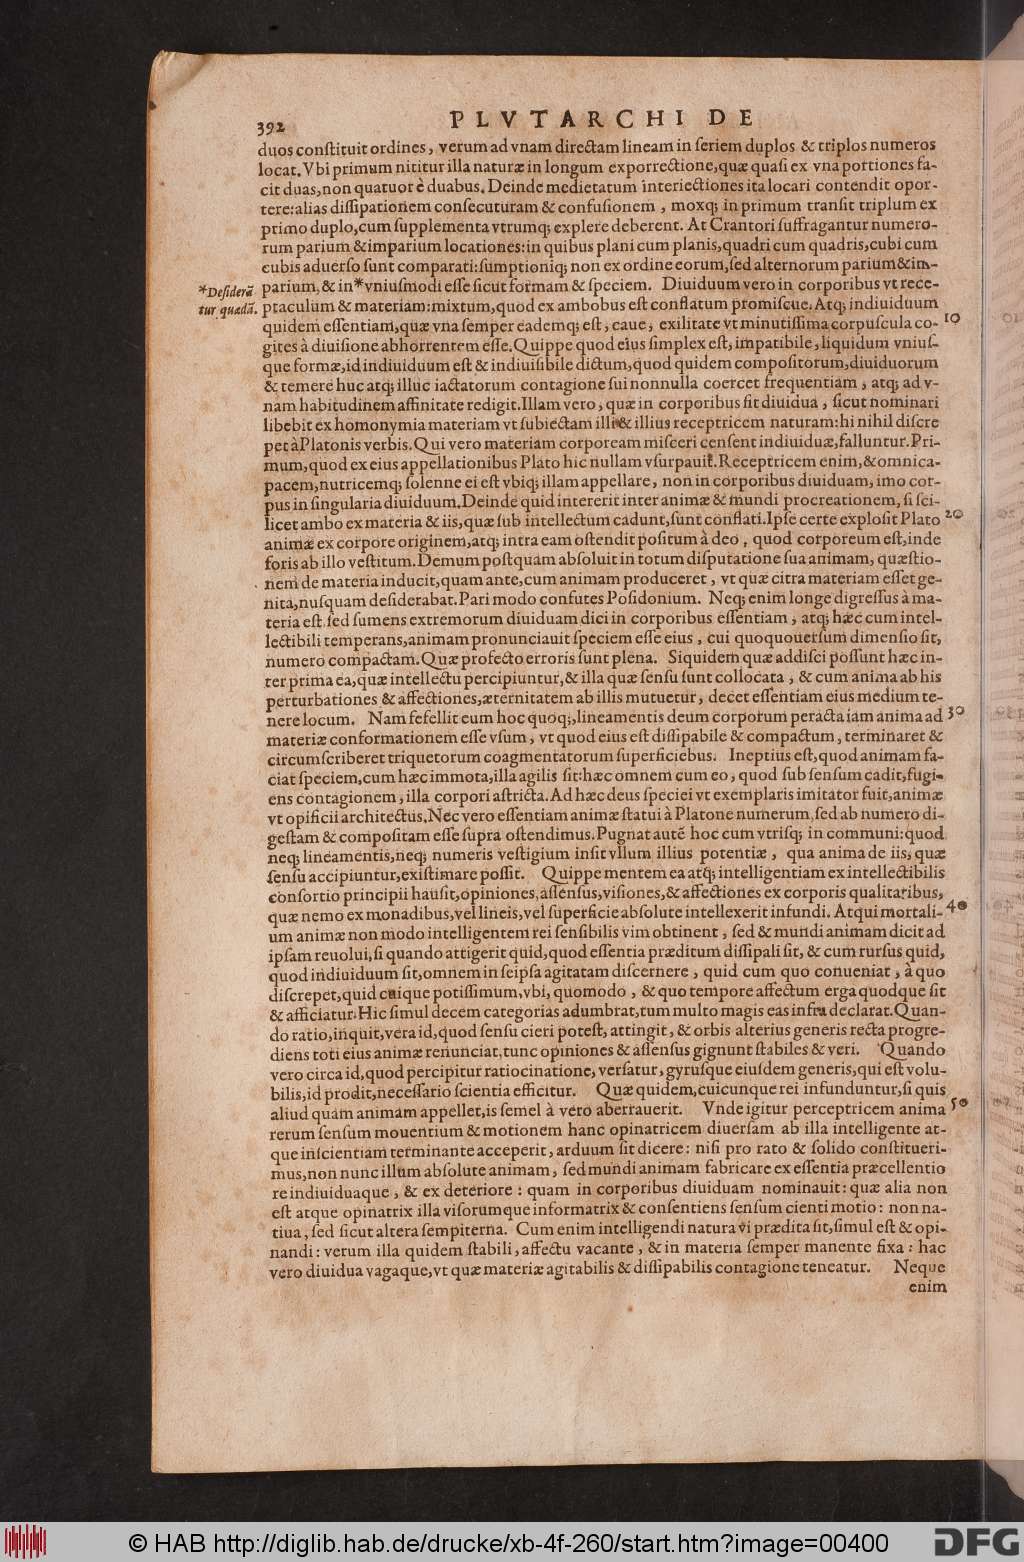 392 PLVTARCHI DE
duos constituit ordines, verum ad vnam directam lineam in seriem duplos & triplos numeros
locat. Vbi primum nititur illa naturæ in longum exporrectione, quæ quasi ex vna portiones fa-
cit duas, non quatuor è duabus. Deinde medietatum interiectiones ita locari contendit opor-
tere: alias dissipationem consecuturam & confusionem, moxq; in primum transit triplum ex
primo duplo, cum supplementa vtrumq; explere deberent. At Crantori suffragantur numero-
rum parium & imparium locationes: in quibus plani cum planis, quadri cum quadris, cubi cum
cubis aduerso sunt comparati: sumptioniq; non ex ordine eorum, sed alternorum parium & im-
parium, & in * vniusmodi esse sicut formam & speciem. Diuiduum vero in corporibus vt rece-
*Desiderã
tur quædã.
ptaculum & materiam: mixtum, quod ex ambobus est conflatum promiscue. Atq; indiuiduum
quidem essentiam, quæ vna semper eademq; est, caue, exilitate vt minutissima corpuscula co- 10
gites à diuisione abhorrentem esse. Quippe quod eius simplex est, impatibile, liquidum vnius-
que formæ, id indiuiduum est & indiuisibile dictum, quod quidem compositorum, diuiduorum
& temere huc atq; illuc iactatorum contagione sui nonnulla coercet frequentiam, atq; ad v-
nam habitudinem affinitate redigit. Illam vero, quæ in corporibus fit diuidua, sicut nominari
libebit ex homonymia materiam vt subiectam illi & illius receptricem naturam: hi nihil discre
pet à Platonis verbis. Qui vero materiam corpoream misceri censent indiuiduæ, falluntur. Pri-
mum, quod ex eius appellationibus Plato hic nullam vsurpauit. Receptricem enim, & omnica-
pacem, nutricemq; solenne ei est vbiq; illam appellare, non in corporibus diuiduam, imo cor-
pus in singularia diuiduum. Deinde quid intererit inter animæ & mundi procreationem, si sci-
licet ambo ex materia & iis, quæ sub intellectum cadunt, sunt conflati. Ipse certe explosit Plato 20
animæ ex corpore originem, atq; intra eam ostendit positum à deo, quod corporeum est, inde
foris ab illo vestitum. Demum postquam absoluit in totum disputatione sua animam, quæstio-
nem de materia inducit, quam ante, cum animam produceret, vt quæ citra materiam esset ge-
nita, nusquam desiderabat. Pari modo confutes Posidonium. Neq; enim longe digressus à ma-
teria est. sed sumens extremorum diuiduam dici in corporibus essentiam, atq; hæc cum intel-
lectibili temperans, animam pronunciauit speciem esse eius, cui quoquouersum dimensio sit,
numero compactam. Quæ profecto erroris sunt plena. Siquidem quæ addisci possunt hæc in-
ter prima ea, quæ intellectu percipiuntur, & illa quæ sensu sunt collocata, & cum anima ab his
perturbationes & affectiones, æternitatem ab illis mutuetur, decet essentiam eius medium te-
nere locum. Nam fefellit eum hoc quoq;, lineamentis deum corporum peracta iam anima ad 30
materiæ conformationem esse vsum, vt quod eius est dissipabile & compactum, terminaret &
circumscriberet triquetorum coagmentatorum superficiebus. Ineptius est, quod animam fa-
ciat speciem, cum hæc immota, illa agilis sit: hæc omnem cum eo, quod sub sensum cadit, fugi-
ens contagionem, illa corpori astricta. Ad hæc deus speciei vt exemplaris imitator fuit, animæ
vt opificii architectus. Nec vero essentiam animæ statui à Platone numerum, sed ab numero di-
gestam & compositam esse supra ostendimus. Pugnat autẽ hoc cum vtrisq; in communi: quod
neq; lineamentis, neq; numeris vestigium insit vllum illius potentiæ, qua anima de iis, quæ
sensu accipiuntur, existimare possit. Quippe mentem ea atq; intelligentiam ex intellectibilis
consortio principii hausit, opiniones, assensus, visiones, & affectiones ex corporis qualitatibus,
quæ nemo ex monadibus, vel lineis, vel superficie absolute intellexerit infundi. Atqui mortali- 40
um animæ non modo intelligentem rei sensibilis vim obtinent, sed & mundi animam dicit ad
ipsam reuolui, si quando attigerit quid, quod essentia præditum dissipali sit, & cum rursus quid,
quod indiuiduum sit, omnem in seipsa agitatam discernere, quid cum quo conueniat, à quo
discrepet, quid cuique potissimum, vbi, quomodo, & quo tempore affectum erga quodque sit
& afficiatur. Hic simul decem categorias adumbrat, tum multo magis eas infra declarat. Quan-
do ratio, inquit, vera id, quod sensu cieri potest, attingit, & orbis alterius generis recta progre-
diens toti eius animæ renunciat, tunc opiniones & assensus gignunt stabiles & veri. Quando
vero circa id, quod percipitur ratiocinatione, versatur, gyrusque eiusdem generis, qui est volu-
bilis, id prodit, necessario scientia efficitur. Quæ quidem, cuicunque rei infunduntur, si quis
aliud quam animam appellet, is semel à vero aberrauerit. Vnde igitur perceptricem anima 50
rerum sensum mouentium & motionem hanc opinatricem diuersam ab illa intelligente at-
que inscientiam terminante acceperit, arduum sit dicere: nisi pro rato & solido constitueri-
mus, non nunc illum absolute animam, sed mundi animam fabricare ex essentia præcellentio
re indiuiduaque, & ex deteriore: quam in corporibus diuiduam nominauit: quæ alia non
est atque opinatrix illa visorumque informatrix & consentiens sensum cienti motio: non na-
tiua, sed sicut altera sempiterna. Cum enim intelligendi natura vi prædita sit, simul est & opi-
nandi: verum illa quidem stabili, affectu vacante, & in materia semper manente fixa: hac
vero diuidua vagaque, vt quæ materiæ agitabilis & dissipabilis contagione teneatur. Neque
enim
© HAB http://diglib.hab.de/drucke/xb-4f-260/start.htm?image=00400
DFG